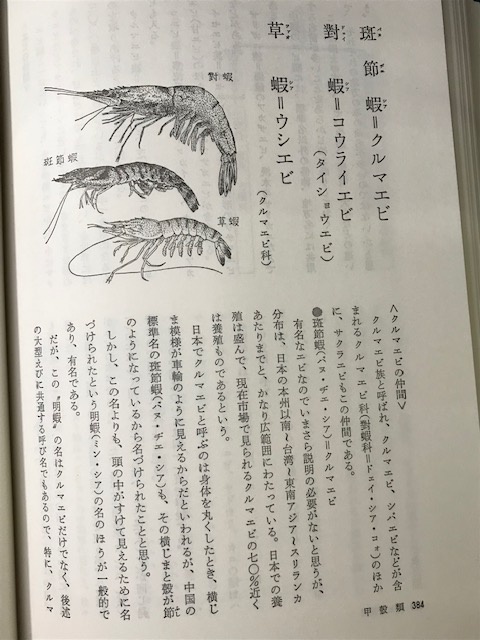 斑節蝦=クルマエビ
對蝦=コウライエビ
(タイショウエビ)
草蝦=ウシエビ
(クルマエビ科)
對蝦
斑節蝦
草蝦
〈クルマエビの仲間〉
クルマエビ族と呼ばれ、クルマエビ、シバエビなどが含
まれるクルマエビ科(對蝦科=ドェイ・シア・コォ)のほか
に、サクラエビもこの仲間である。
●斑節蝦(バヌ・ヂエ・シア)=クルマエビ
有名なエビなのでいまさら説明の必要がないと思うが、
分布は、日本の本州以南〜台湾〜東南アジア〜スリランカ
あたりまでと、かなり広範囲にわたっている。日本での養
殖は盛んで、現在市場で見られるクルマエビの七〇%近く
は養殖ものであるという。
日本でクルマエビと呼ぶのは身体を丸くしたとき、横じ
ま模様が車輪のように見えるからだといわれるが、中国の
標準名の斑節蝦(バヌ・ヂエ・シア)も、その横じまと殻が節
のようになっているから名づけられたことと思う。
しかし、この名よりも、頭の中がすけて見えるために名
づけられたという明蝦(ミン・シア)の名のほうが一般的で
あり、有名である。
だが、この〝明蝦〟の名はクルマエビだけでなく、後述
の大型えびに共通する呼び名でもあるので、特に、クルマ
甲殻類 384